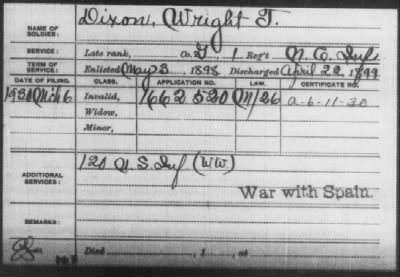 NAME OF SOLDIER: Dixon, Wright T.
SERVICE: Late rank, Co. G, 1 Reg't N. C. Inf.
TERM OF SERVICE: Enlisted May 3, 1898 Discharged April 22, 1899
DATE OF FILING. CLASS. APPLICATION NO. LAW. CERTIFICATE NO.
1930 Mch 6 Invalid, 1662520 M/26 a-6-11-30
Widow,
Minor,
ADDITIONAL SERVICES: 120 U. S. Inf (WW)
War with Spain.
REMARKS:
Died , 1 , at